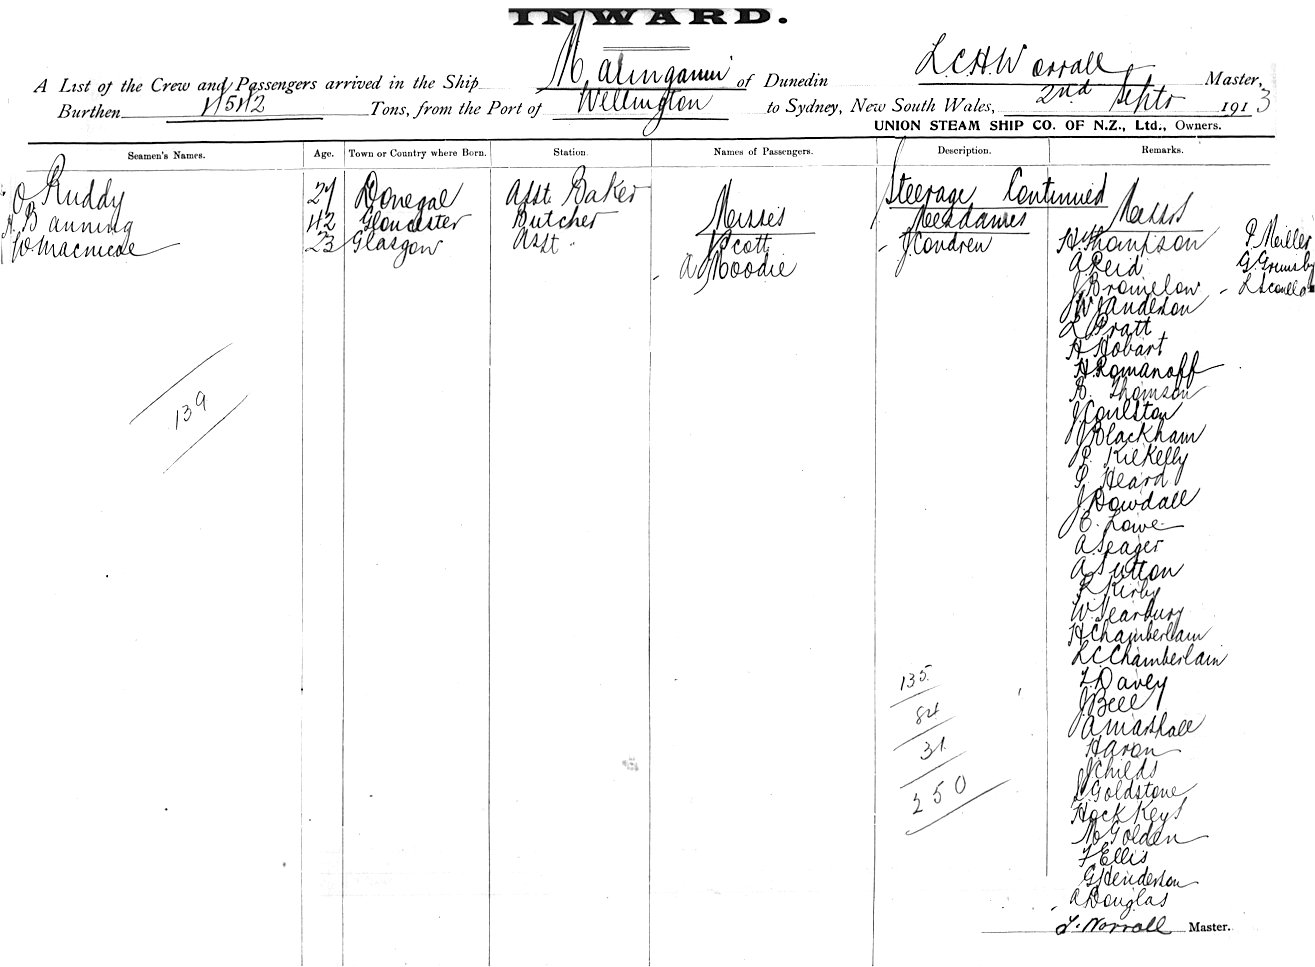 INWARD.
A List of the Crew and Passengers arrived in the Ship Malinganui of Dunedin L.C.H. Worrall Master,
Burthen Tons, from the Port of Wellington to Sydney, New South Wales, 2nd Septr 1913
UNION STEAM SHIP CO. OF N.Z., Ltd., Owners.
Seamen's Names. Age. Town or Country where Born. Station. Names of Passengers. Description. Remarks.
O Ruddy 27 Donegal Asst Baker
H. Banning 42 Gloucester Butcher
W Macnicoe 23 Glasgow Asst "
139
Misses
Scott
A Moodie
Steerage Continued
Mesdames
J. Condren
135
84
31
250
Messrs
H Thompson
A Reid
J Bromelow
J W Sanderson
L Pratt
H Hobart
H. Romanoff
B. Thomson
J Coulston
J Blackham
P. Kilkelly
P. Heard
J Dowdall
C. Lowe
A. Seager
A Sutton
R Kirby
W. Searbury
H Chamberlain
L C Chamberlain
F Davey
J. Bell
A Marshall
Haron
J Childs
L. Goldstone
Hock Keys
M Golden
F Ellis
G Henderson
A Douglas
P Meiller
G. Grumsby
L. Worrall Master.